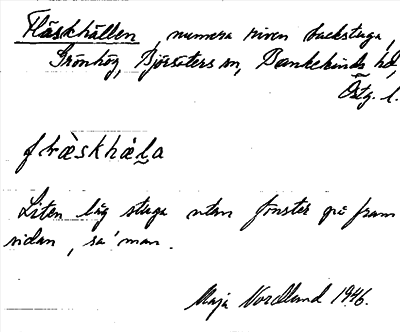 Fläskhällen, numera riven backstuga,
Grönhög, Björsäters sn, Bankekinds hd,
Östg. l.
flæ̀skhä̀l̬a
Liten låg stuga utan fönster på fram
sidan, sa' man.
Maja Nordlund 1946.